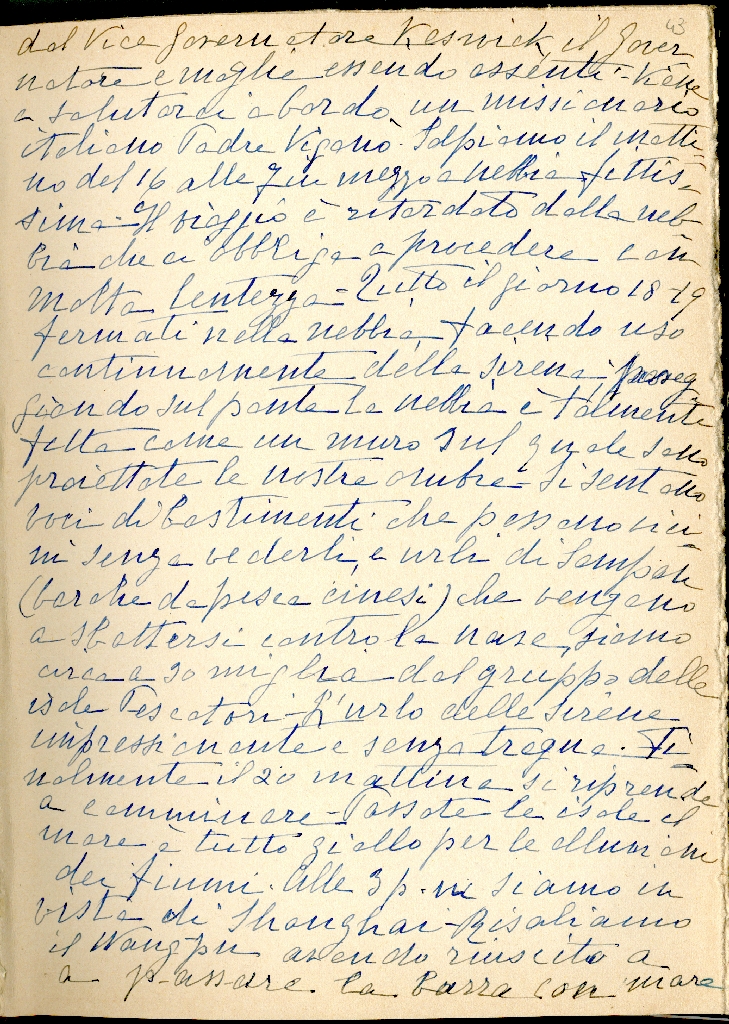 43
dal Vice Governatore Keswick, il Gover
natore e moglie essendo assenti - Viene
a salutarci a bordo un missionario
italiano Padre Viganò. Salpiamo il matti-
no del 16 alle 7 e mezzo a nebbia fittis-
sima - Il viaggio è ritardato dalla neb-
bia che ci obbliga a procedere con
molta lentezza - Tutto il giorno 18-19
fermati nella nebbia facendo uso
continuamente della sirena, passeg
giando sul ponte la nebbia è talmente
fitta come un muro sul quale sono
proiettate le nostre ombre - Si sentono
voci di bastimenti che passano vici-
ni senza vederli, e urli di Sampan
(barche da pesca cinesi) che vengono
a sbattersi contro la nave, siamo
circa a 30 miglia dal gruppo delle
isole Pescatori - L'urlo delle sirene
impressionante e senza tregua. Fi-
nalmente il 20 mattina si riprende
a camminare - Passate le isole il
mare è tutto giallo per le alluvioni
dei fiumi. Alle 3 p. m siamo in
vista di Shanghai - Risaliamo
il Wangpu avendo riuscito a
a passare la barra con mare